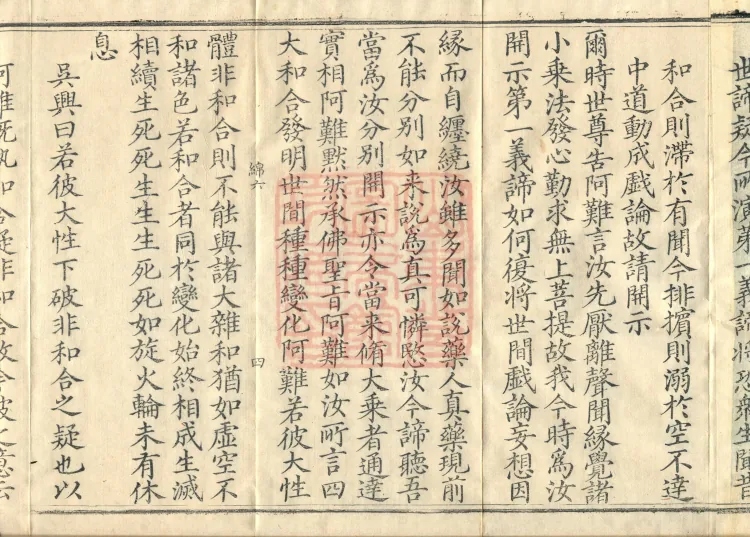 世諦疑今所演第一義諦將恐衆生聞昔
和合則滯於有聞今排擯則溺於空不達
中道動成戲論故請開示
爾時世尊告阿難言汝先厭離聲聞緣覺諸
小乘法發心勤求無上菩提故我今時爲汝
開示第一義諦如何復將世間戲論妄想因
緣而自纏繞汝雖多聞如說藥人真藥現前
不能分別如来說爲真可憐愍汝今諦聽吾
當爲汝分別開示亦令當来脩大乘者通達
實相阿難默然承佛聖旨阿難如汝所言四
大和合發明世間種種變化阿難若彼大性
綿六
四
體非和合則不能與諸大雜和猶如虛空不
和諸色若和合者同於變化始終相成生滅
相續生死死生生生死死如旋火輪未有休
息
吳興曰若彼大性下破非和合之疑也以
阿難既執和合疑非和合故今彼之意云